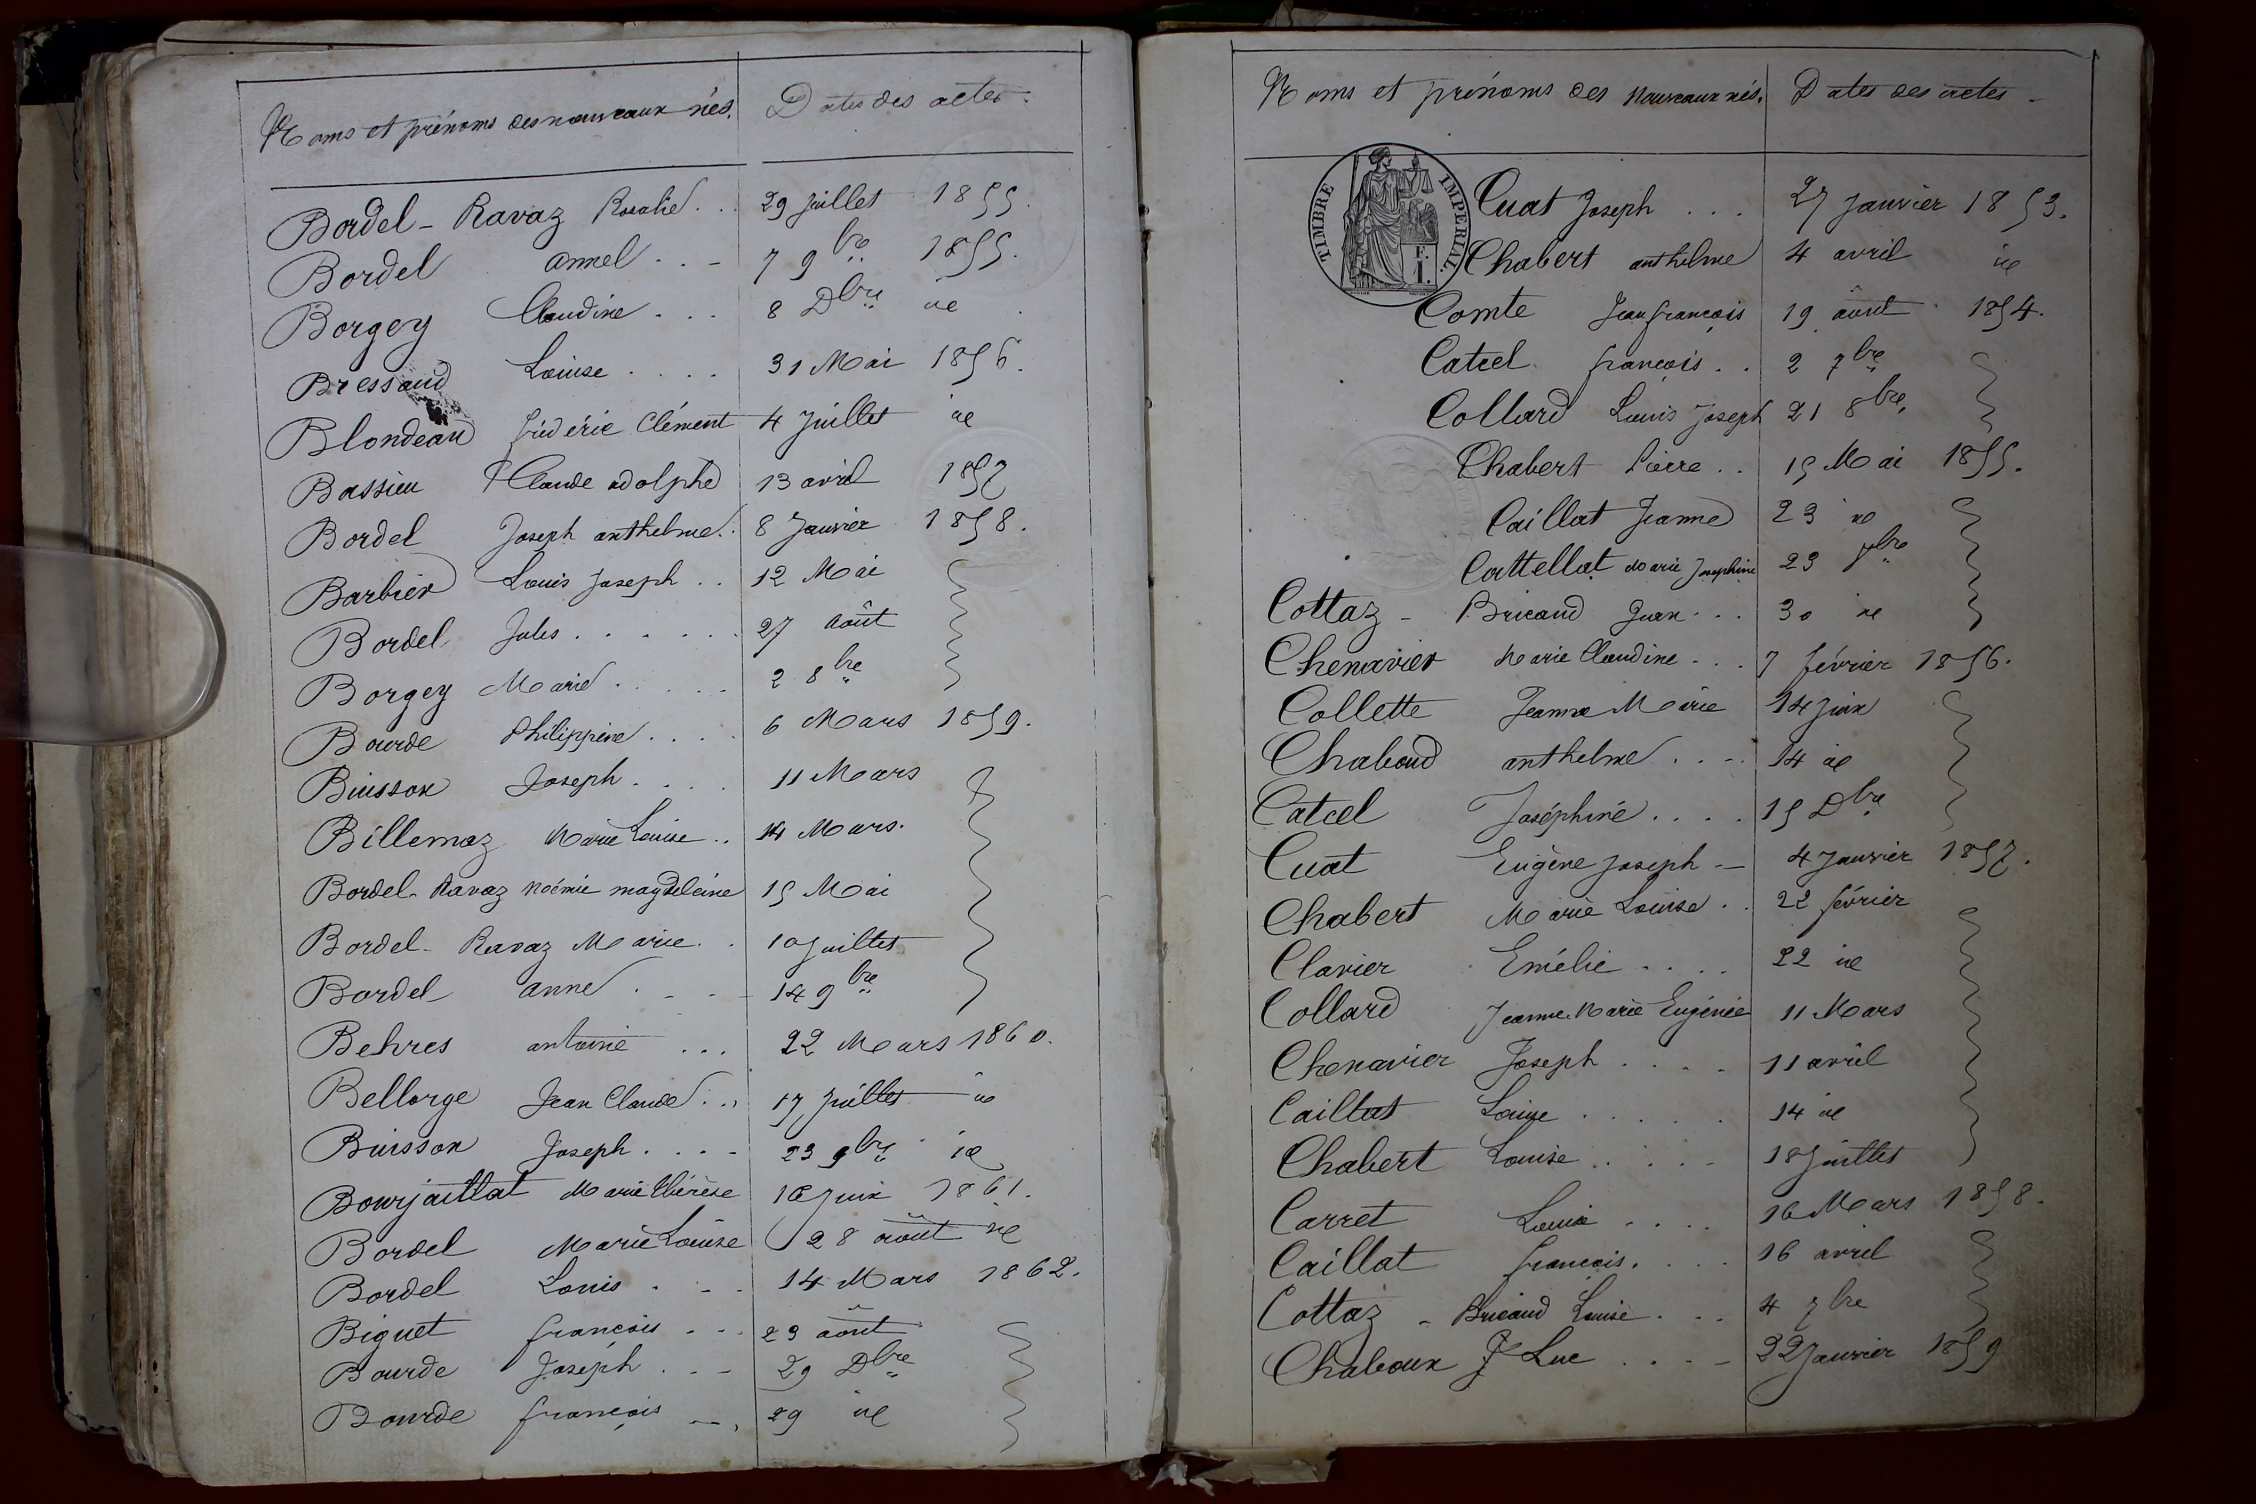 Noms et prénoms des nouveaux nés. Dates des actes.
Bordel - Ravaz Rosalie . . 29 Juillet 1855.
Bordel annel . . - 7 9bre 1855.
Borgey Claudine . . . 8 Dbre id
Bressand Louise . . . . 31 Mai 1856.
Blondeau frédéric Clément 4 Juillet id
Bassieu Claude adolphe 13 avril 1857
Bordel Joseph anthelme . . 8 Janvier 1858.
Barbier Louis Joseph . . 12 Mai
Bordel Jules . . . . . . 27 Août
Borgey Marie . . . . . 2 8bre
Bourde Philippine . . . . 6 Mars 1859.
Buisson Joseph . . . . 11 Mars
Billemaz Marie Louise . . 14 Mars.
Bordel - Ravaz Noémie magdeleine 15 Mai
Bordel - Ravaz Marie . . 10 Juillet
Bordel anne . - - 14 9bre
Behres antoine . . . 22 Mars 1860.
Bellorge Jean Claude . . . 17 Juillet id
Buisson Joseph . . . - 23 9bre id
Bourjaillat Marie Thérèse 16 Juin 1861.
Bordel Marie Louise 28 août id
Bordel Louis . - . 14 Mars 1862.
Biguet françois . - . 23 août
Bourde Joseph . . - 29 Dbre
Bourde françois 29 id
Noms et prénoms des nouveaux nés. Dates des actes -
TIMBRE IMPERIAL.
E. I.
Cuat Joseph . . . 27 Janvier 1853.
Chabert anthelme 4 avril id
Comte Jean françois 19 août 1854.
Catcel françois . . 2 7bre
Collard Louis Joseph 21 8bre
Chabert Pierre . . 15 Mai 1855.
Caillat Jeanne 23 id
Cattellat Marie Josephine 23 7bre
Cottaz - Bricaud Jean . . . 30 id
Chenavier Marie Claudine . . . 7 février 1856.
Collette Jeanne Marie 14 Juin
Chaboud anthelme . . - . 14 id
Catcel Joséphine . . . . 15 Dbre
Cuat Eugène Joseph - 4 Janvier 1857.
Chabert Marie Louise . . 22 février
Clavier Emélie . . . . 22 id
Collard Jeanne Marie Eugénie 11 Mars
Chenavier Joseph . . . . 11 avril
Caillat Louise . . . . . 14 id
Chabert Louise . . . . - 18 Juillet
Carret Louis . . . . 16 Mars 1858.
Caillat françois . . . . 16 avril
Cottaz - Bricaud Louise . . . 4 7bre
Chaboux J Luc . . . - 22 Janvier 1859